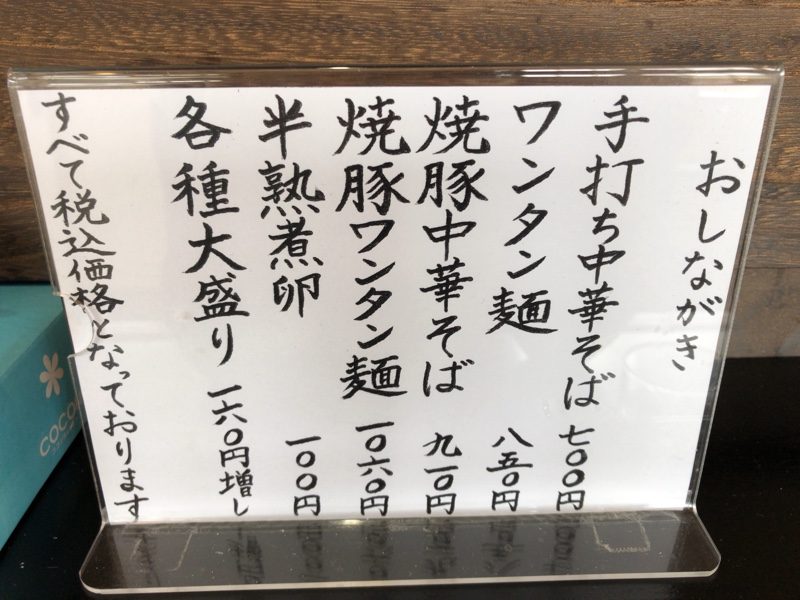 おしながき
手打ち中華そば 七〇〇円
ワンタン麺 八五〇円
焼豚中華そば 九一〇円
焼豚ワンタン麺 一〇六〇円
半熟煮卵 一〇〇円
各種大盛り 一六〇円増し
すべて税込価格となっております